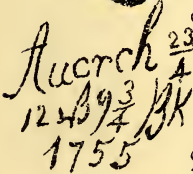 Auerch 23/4
12 u β 9 3/4 βK
1755